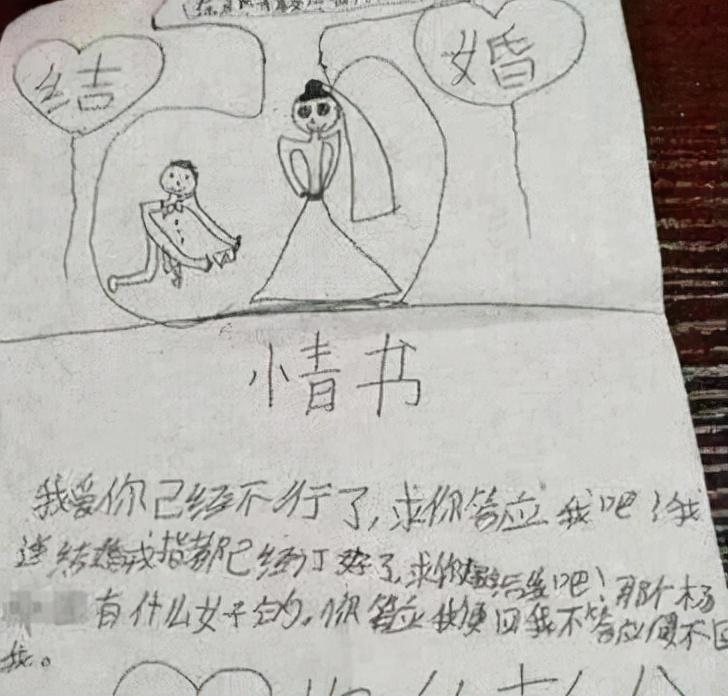 结
婚
情书
我爱你已经不行了,求你答应我吧!我
连结婚戒指都已经订好了,求你 吧!那个杨
有什么好的。你答应我便回我不答应便不回
我。